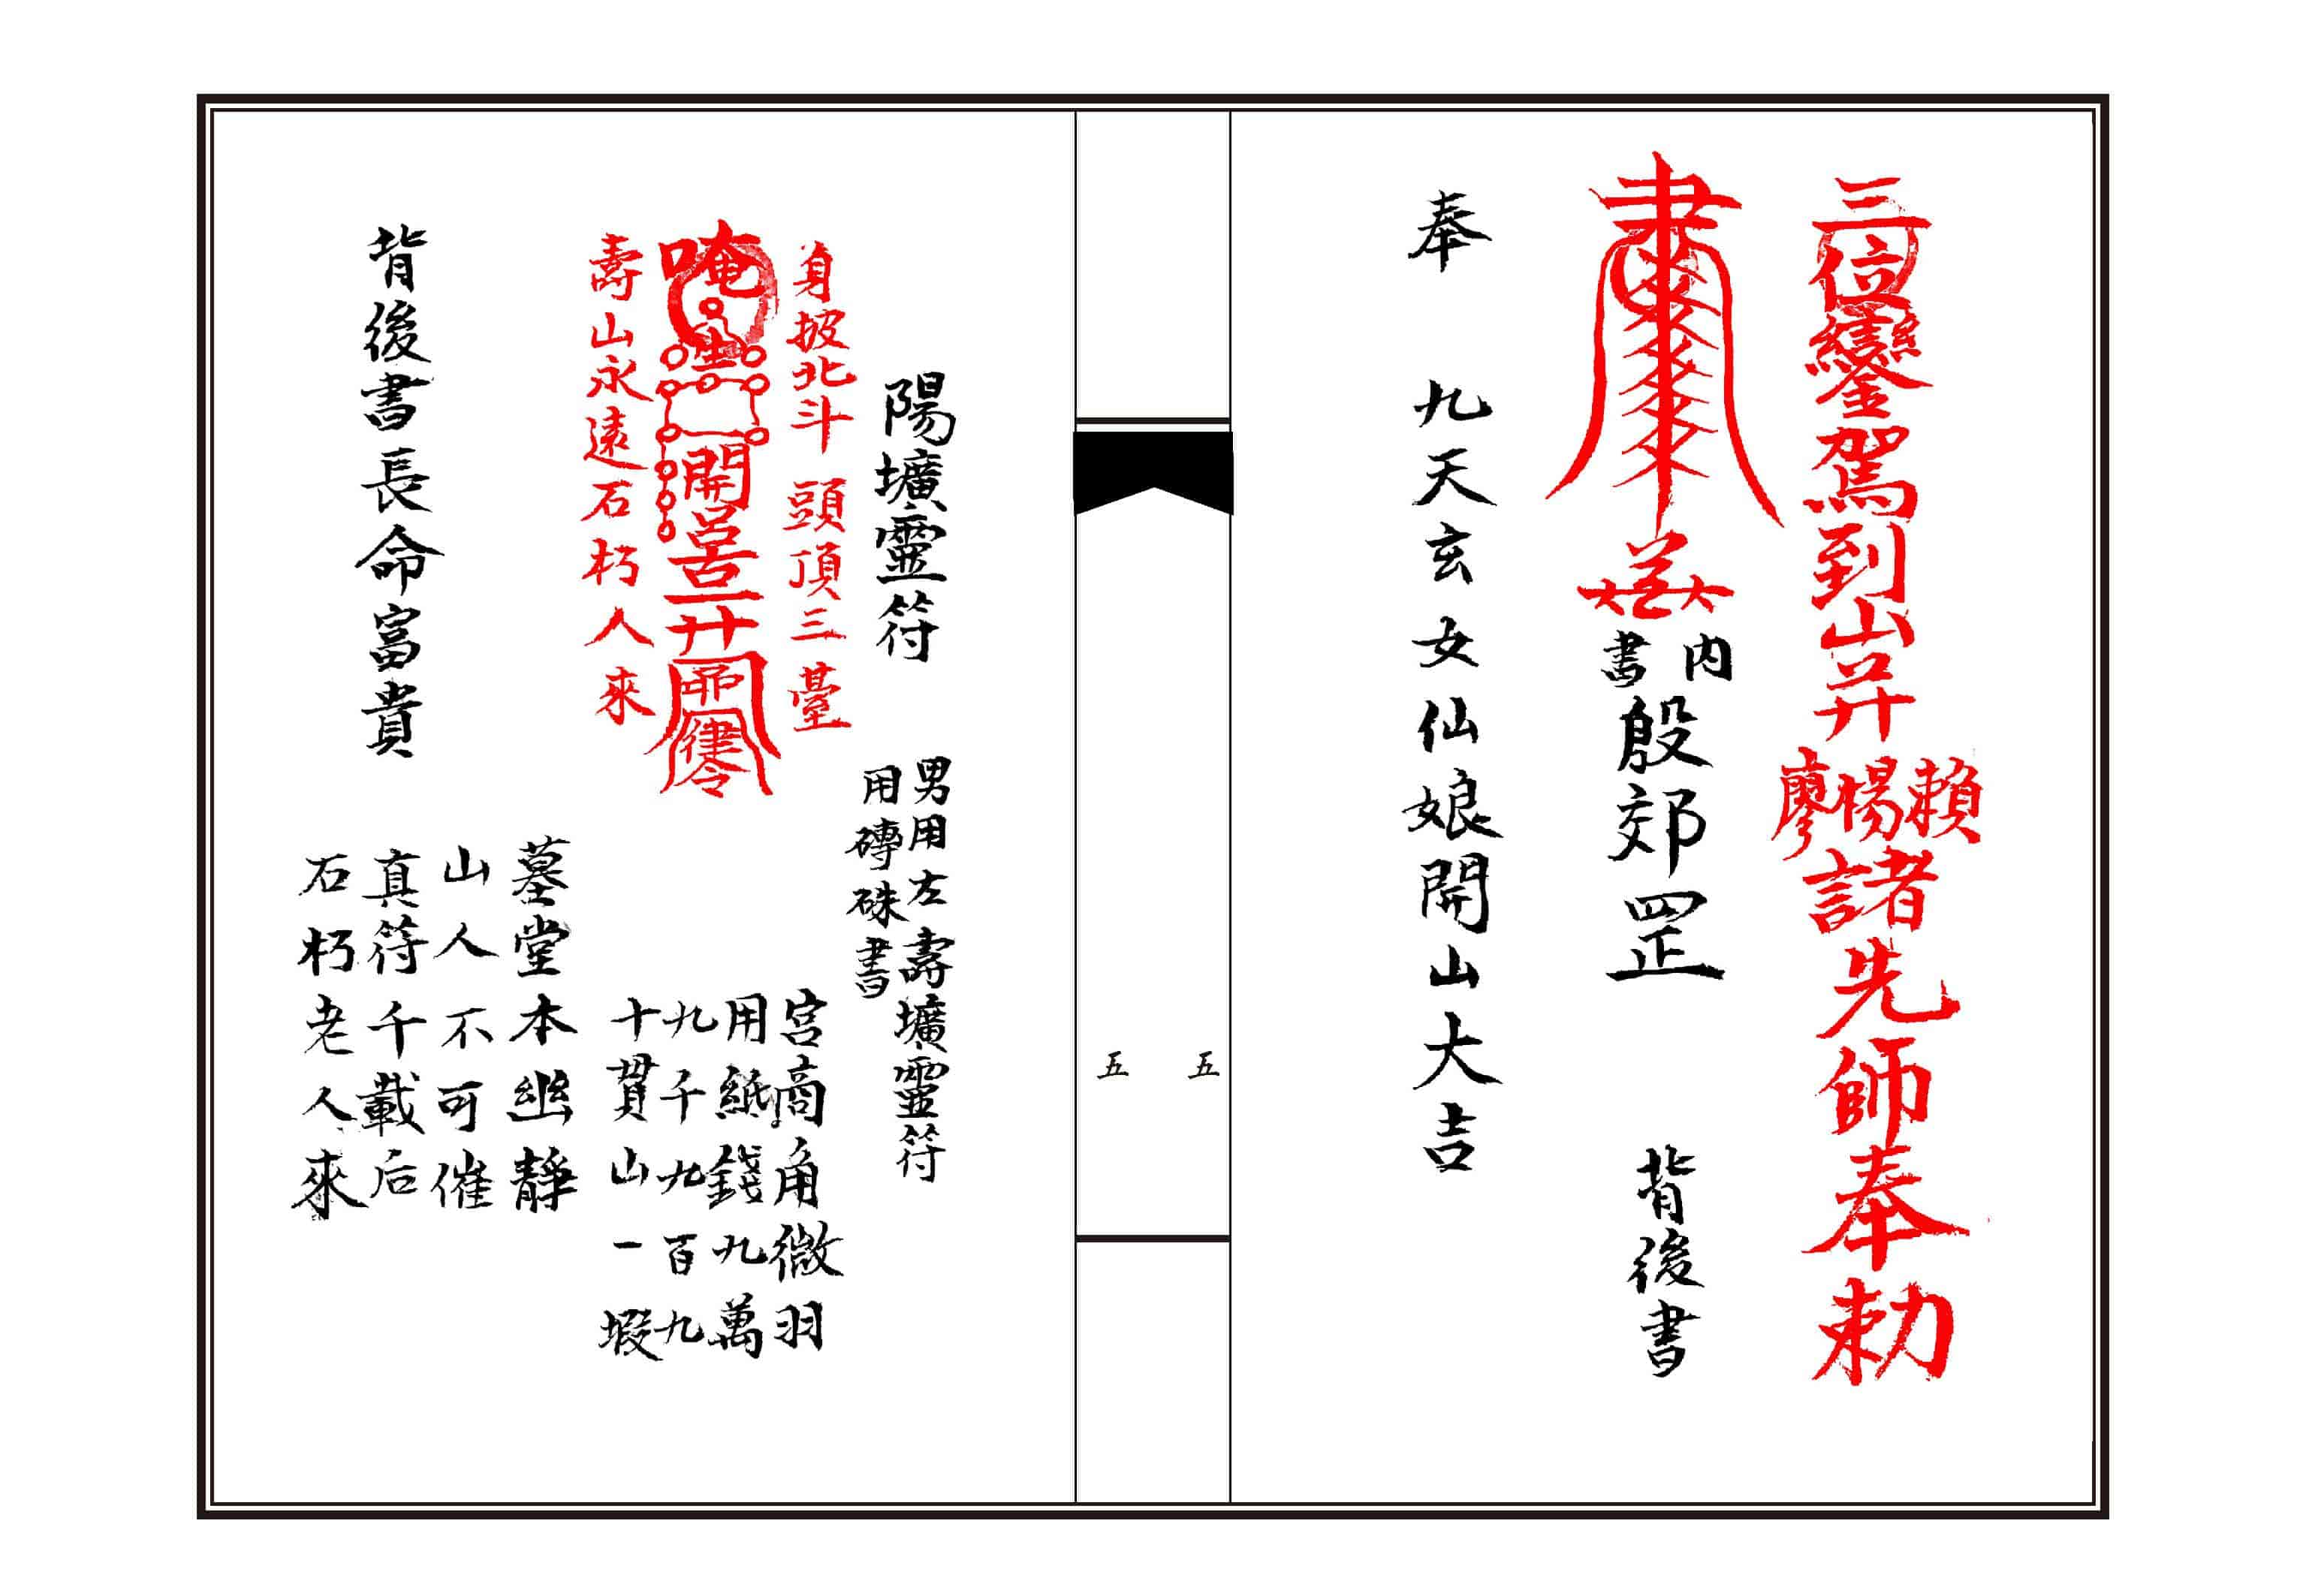 三位鑾駕到山并賴楊廖諸先師奉勅
內書殷郊罡
背後書
奉 九天玄女仙娘開山大吉
五
五
陽壙靈符
男用左壽壙靈符
用磚硃書
身披北斗頭頂三臺
唵
開
律令
壽山永遠石朽人來
宮商角微羽
用紙錢九萬
九千九百九
十貫山一塅
背後書長命富貴
墓堂本幽靜
山人不可催
真符千載后
石朽老人來